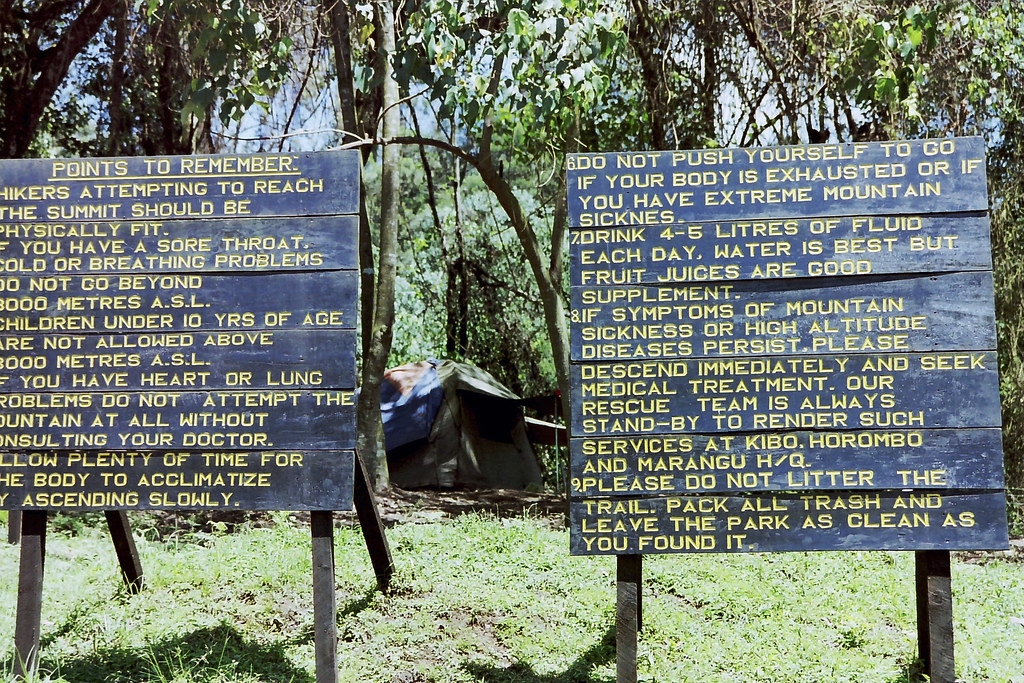 POINTS TO REMEMBER:
HIKERS ATTEMPTING TO REACH
THE SUMMIT SHOULD BE
PHYSICALLY FIT.
F YOU HAVE A SORE THROAT.
COLD OR BREATHING PROBLEMS
DO NOT GO BEYOND
3000 METRES A.S.L.
CHILDREN UNDER 10 YRS OF AGE
ARE NOT ALLOWED ABOVE
3000 METRES A.S.L.
F YOU HAVE HEART OR LUNG
ROBLEMS DO NOT ATTEMPT THE
OUNTAIN AT ALL WITHOUT
ONSULTING YOUR DOCTOR.
LLOW PLENTY OF TIME FOR
HE BODY TO ACCLIMATIZE
Y ASCENDING SLOWLY.
6.DO NOT PUSH YOURSELF TO GO
IF YOUR BODY IS EXHAUSTED OR IF
YOU HAVE EXTREME MOUNTAIN
SICKNES.
7.DRINK 4-5 LITRES OF FLUID
EACH DAY, WATER IS BEST BUT
FRUIT JUICES ARE GOOD
SUPPLEMENT.
8.IF SYMPTOMS OF MOUNTAIN
SICKNESS OR HIGH ALTITUDE
DISEASES PERSIST, PLEASE
DESCEND IMMEDIATELY AND SEEK
MEDICAL TREATMENT. OUR
RESCUE TEAM IS ALWAYS
STAND-BY TO RENDER SUCH
SERVICES AT KIBO, HOROMBO
AND MARANGU H/Q.
9.PLEASE DO NOT LITTER THE
TRAIL. PACK ALL TRASH AND
LEAVE THE PARK AS CLEAN AS
YOU FOUND IT.